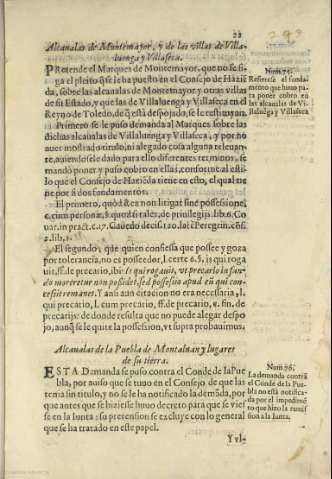 293
22
Alcaualas de Montemayor, y de las villas de Villa-
luenga y Villaseca.
PRetende el Marques de Montemayor, que no se si-
ga el pleito q̃ se le ha puesto en el Consejo de Haziẽ
da, sobre las alcaualas de Montemayor y otras villas
de su Estado, y que las de Villaluenga y Villaseca en el
Reyno de Toledo, de q̃ està despojado, se le restituyan.
Primero se le puso demanda al Marques sobre las
dichas alcaualas de Villaluenga y Villaseca, y por no
auer mostrado titulo, ni alegado cosa alguna releuan-
te, auiendosele dado para ello diferentes terminos, se
mandò poner y puso cobro en ellas, conforme al esti-
lo que el Consejo de Haziẽda tiene en esto, el qual tie
ne por si dos fundamentos.
El primero, quòd
El segundo, que quien confiessa que possee y goza
por tolerancia, no es posseedor, l. certe 6. §. is qui roga
uit, ff. de precario, ibi: Is qui rogauit, vt precario in fun-
do moretur non possidet, sed possessio apud eũ qui con-
cessit remanet. Y aun aun citacion no era necessaria, l.
qui precario, l. cum precario, ff. de precario,
precarijs: de donde resulta que no puede alegar despo-
jo, aunq̃ se le quite la possession, vt supra probauimus.
Alcaualas de la Puebla de Montaluan y lugares
de su tierra.
ESTA Demanda se puso contra el Conde de la Pue
bla, por auiso que se tuuo en el Consejo de que las
tenia sin titulo, y no se le ha notificado la demãda, por
que antes que se hiziesse huuo decreto para que se vies
se en la Iunta: su pretension se excluye con lo general
que se ha tratado en este papel.
Y vl-
Num. 75.
Refierese el funda-
mento que huuo pa
ra poner cobro en
las alcaualas de Vi-
llaluenga y Villaseca
Num. 76.
La demanda contra
el Conde de la Pue
bla no està notifica-
da por el impedimẽ
to que hizo la remis
sion a la Iunta.